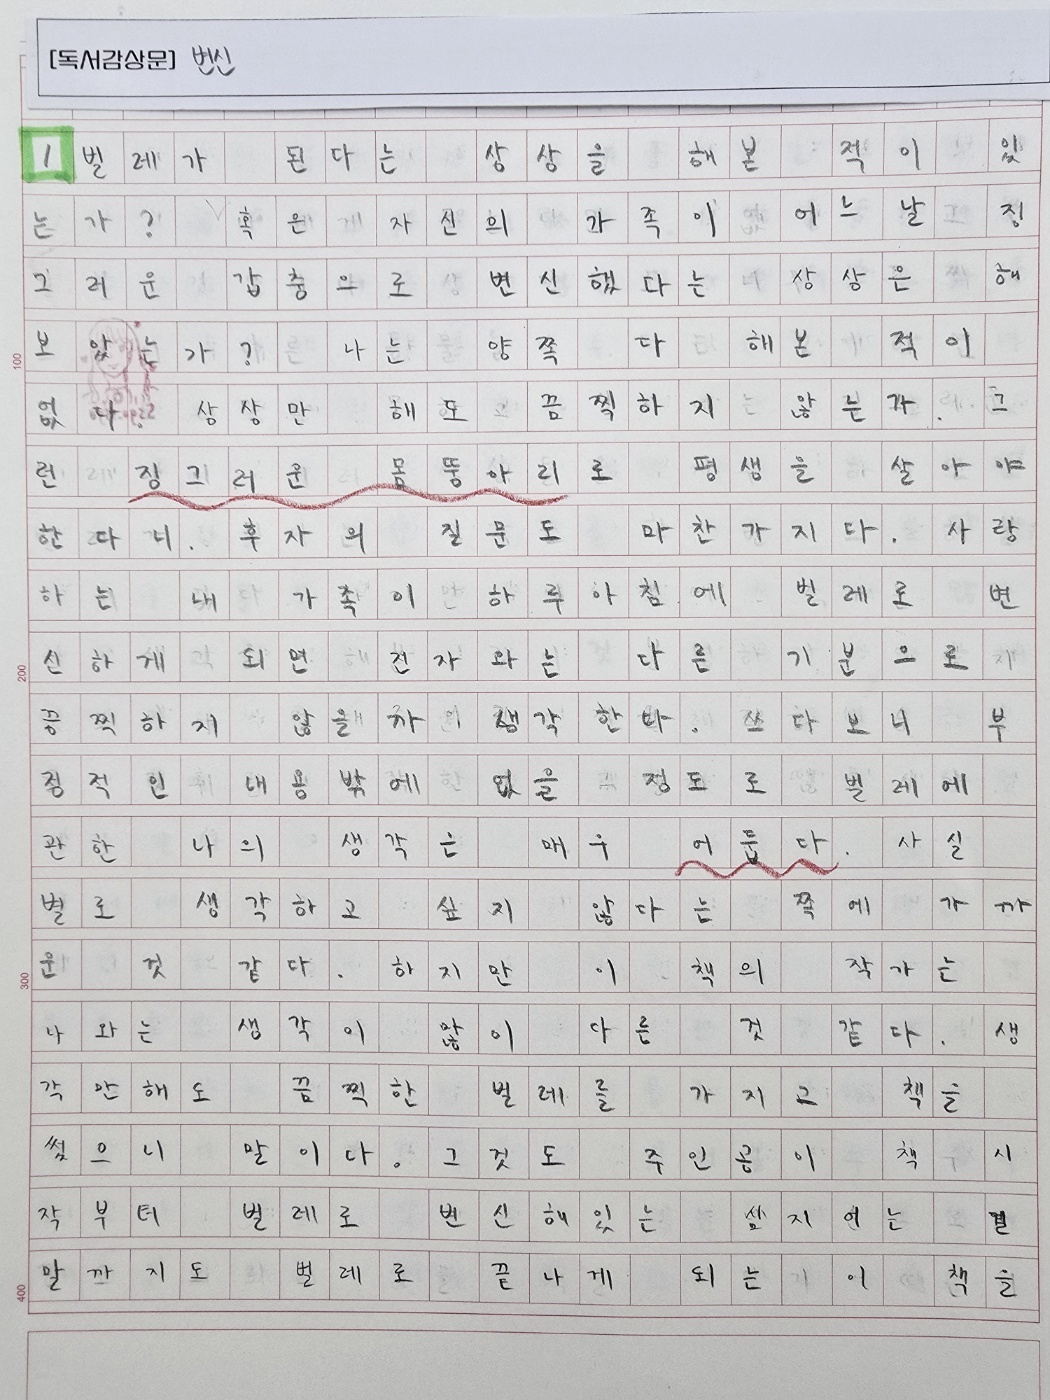 [독서감상문] 변신
1 벌레가 된다는 상상을 해본 적이 있
는가? 혹은 자신의 가족이 어느날 징
그러운 갑충으로 변신했다는 상상은 해
보았는가? 나는 양쪽 다 해본 적이
없다. 상상만 해도 끔찍하지 않는가. 그
런 징그러운 몸뚱아리로 평생을 살아야
한다니. 후자의 질문도 마찬가지다. 사랑
하는 내 가족이 하루아침에 벌레로 변
신하게 되면 전자와는 다른 기분으로
끔찍하지 않을까 생각한다. 쓰다보니 부
정적인 내용밖에 없을 정도로 벌레에
관한 나의 생각은 매우 어둡다. 사실
별로 생각하고 싶지 않다는 쪽에 가까
운 것 같다. 하지만 이 책의 작가는
나와는 생각이 많이 다른 것 같다. 생
각만해도 끔찍한 벌레를 가지고 책을
썼으니 말이다. 그것도 주인공이 책 시
작부터 벌레로 변신해있는 셈지어는 결
말까지도 벌레로 끝나게 되는 이 책을
100
200
300
400